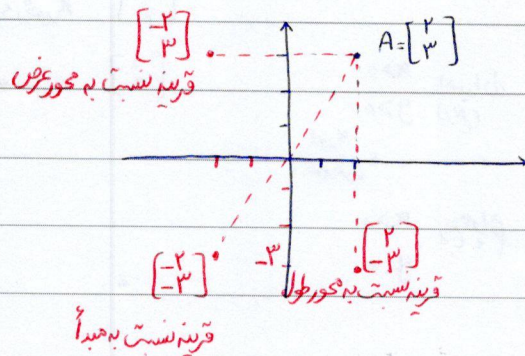 [-۲ ۳]
A = [۲ ۳]
قرینه نسبت به محور عرض
[۲ -۳]
-۳
[-۲ -۳]
قرینه نسبت به محور طول
قرینه نسبت به مبدأ